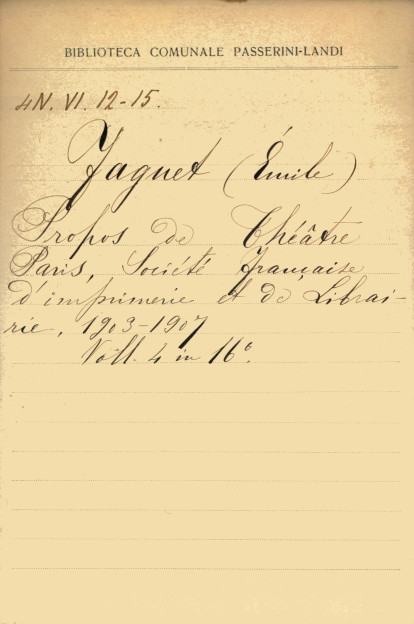 BIBLIOTECA COMUNALE PASSERINI-LANDI
4N. VI. 12-15.
Faguet (Émile)
Propos de Théâtre
Paris, Société française
d'imprimerie et de Librai-
rie, 1903-1907
Voll. 4 in 16°.